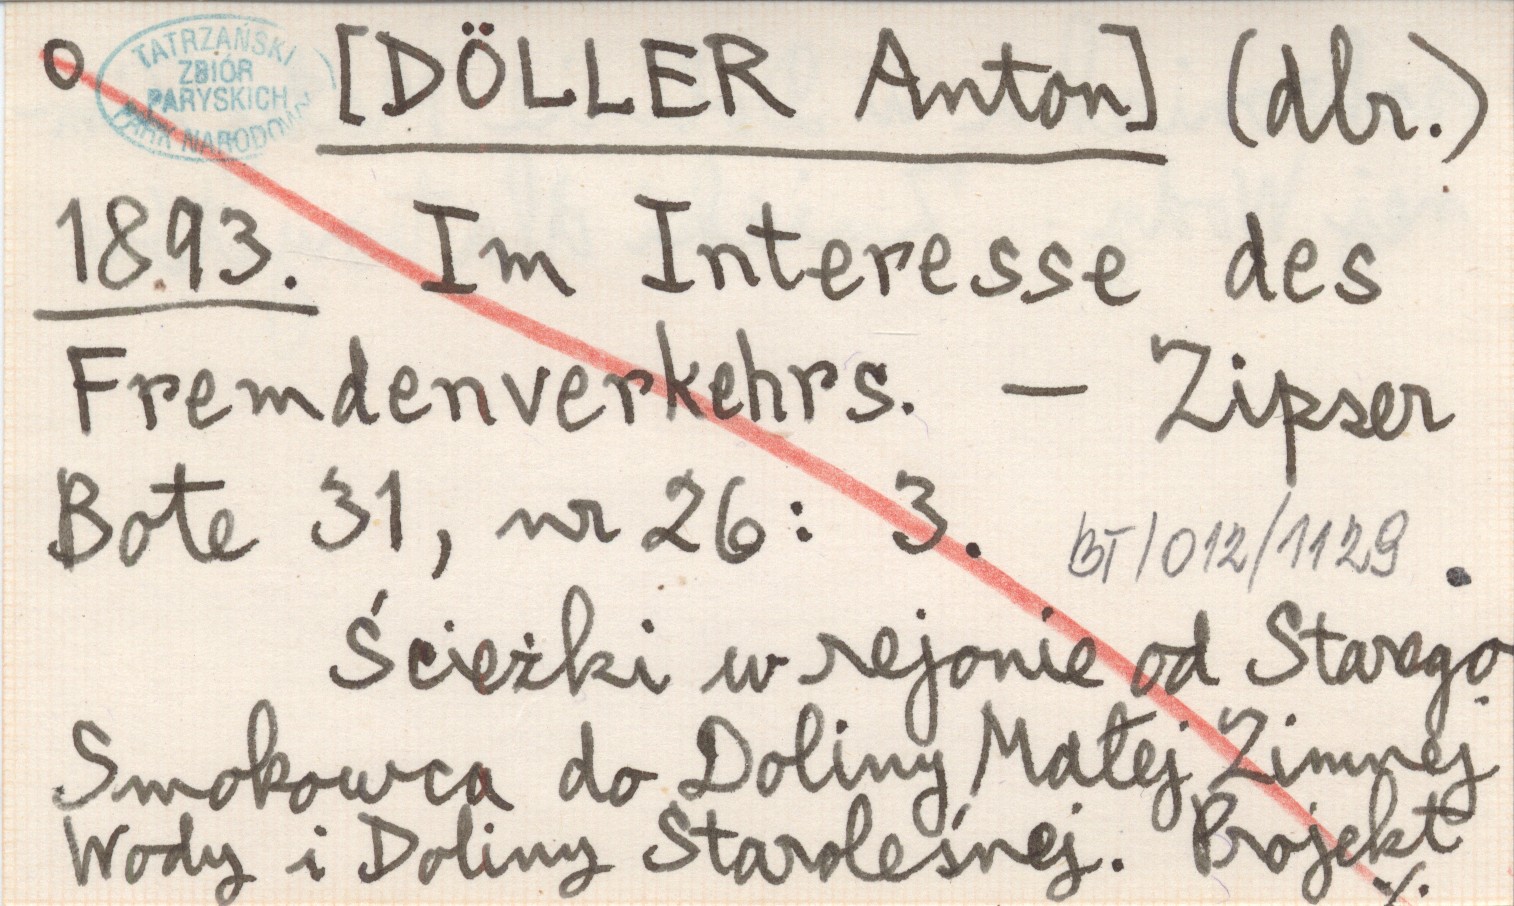 o
TATRZAŃSKI
ZBIÓR
PARYSKICH
PARK NARODOWY
[DÖLLER Anton] (dbr.)
1893. Im Interesse des
Fremdenverkehrs. — Zipser
Bote 31, nr 26: 3.
BT/012/1129
Ścieżki w rejonie od Starego
Smokowca do Doliny Małej Zimnej
Wody i Doliny Staroleśnej. Projekt
./.